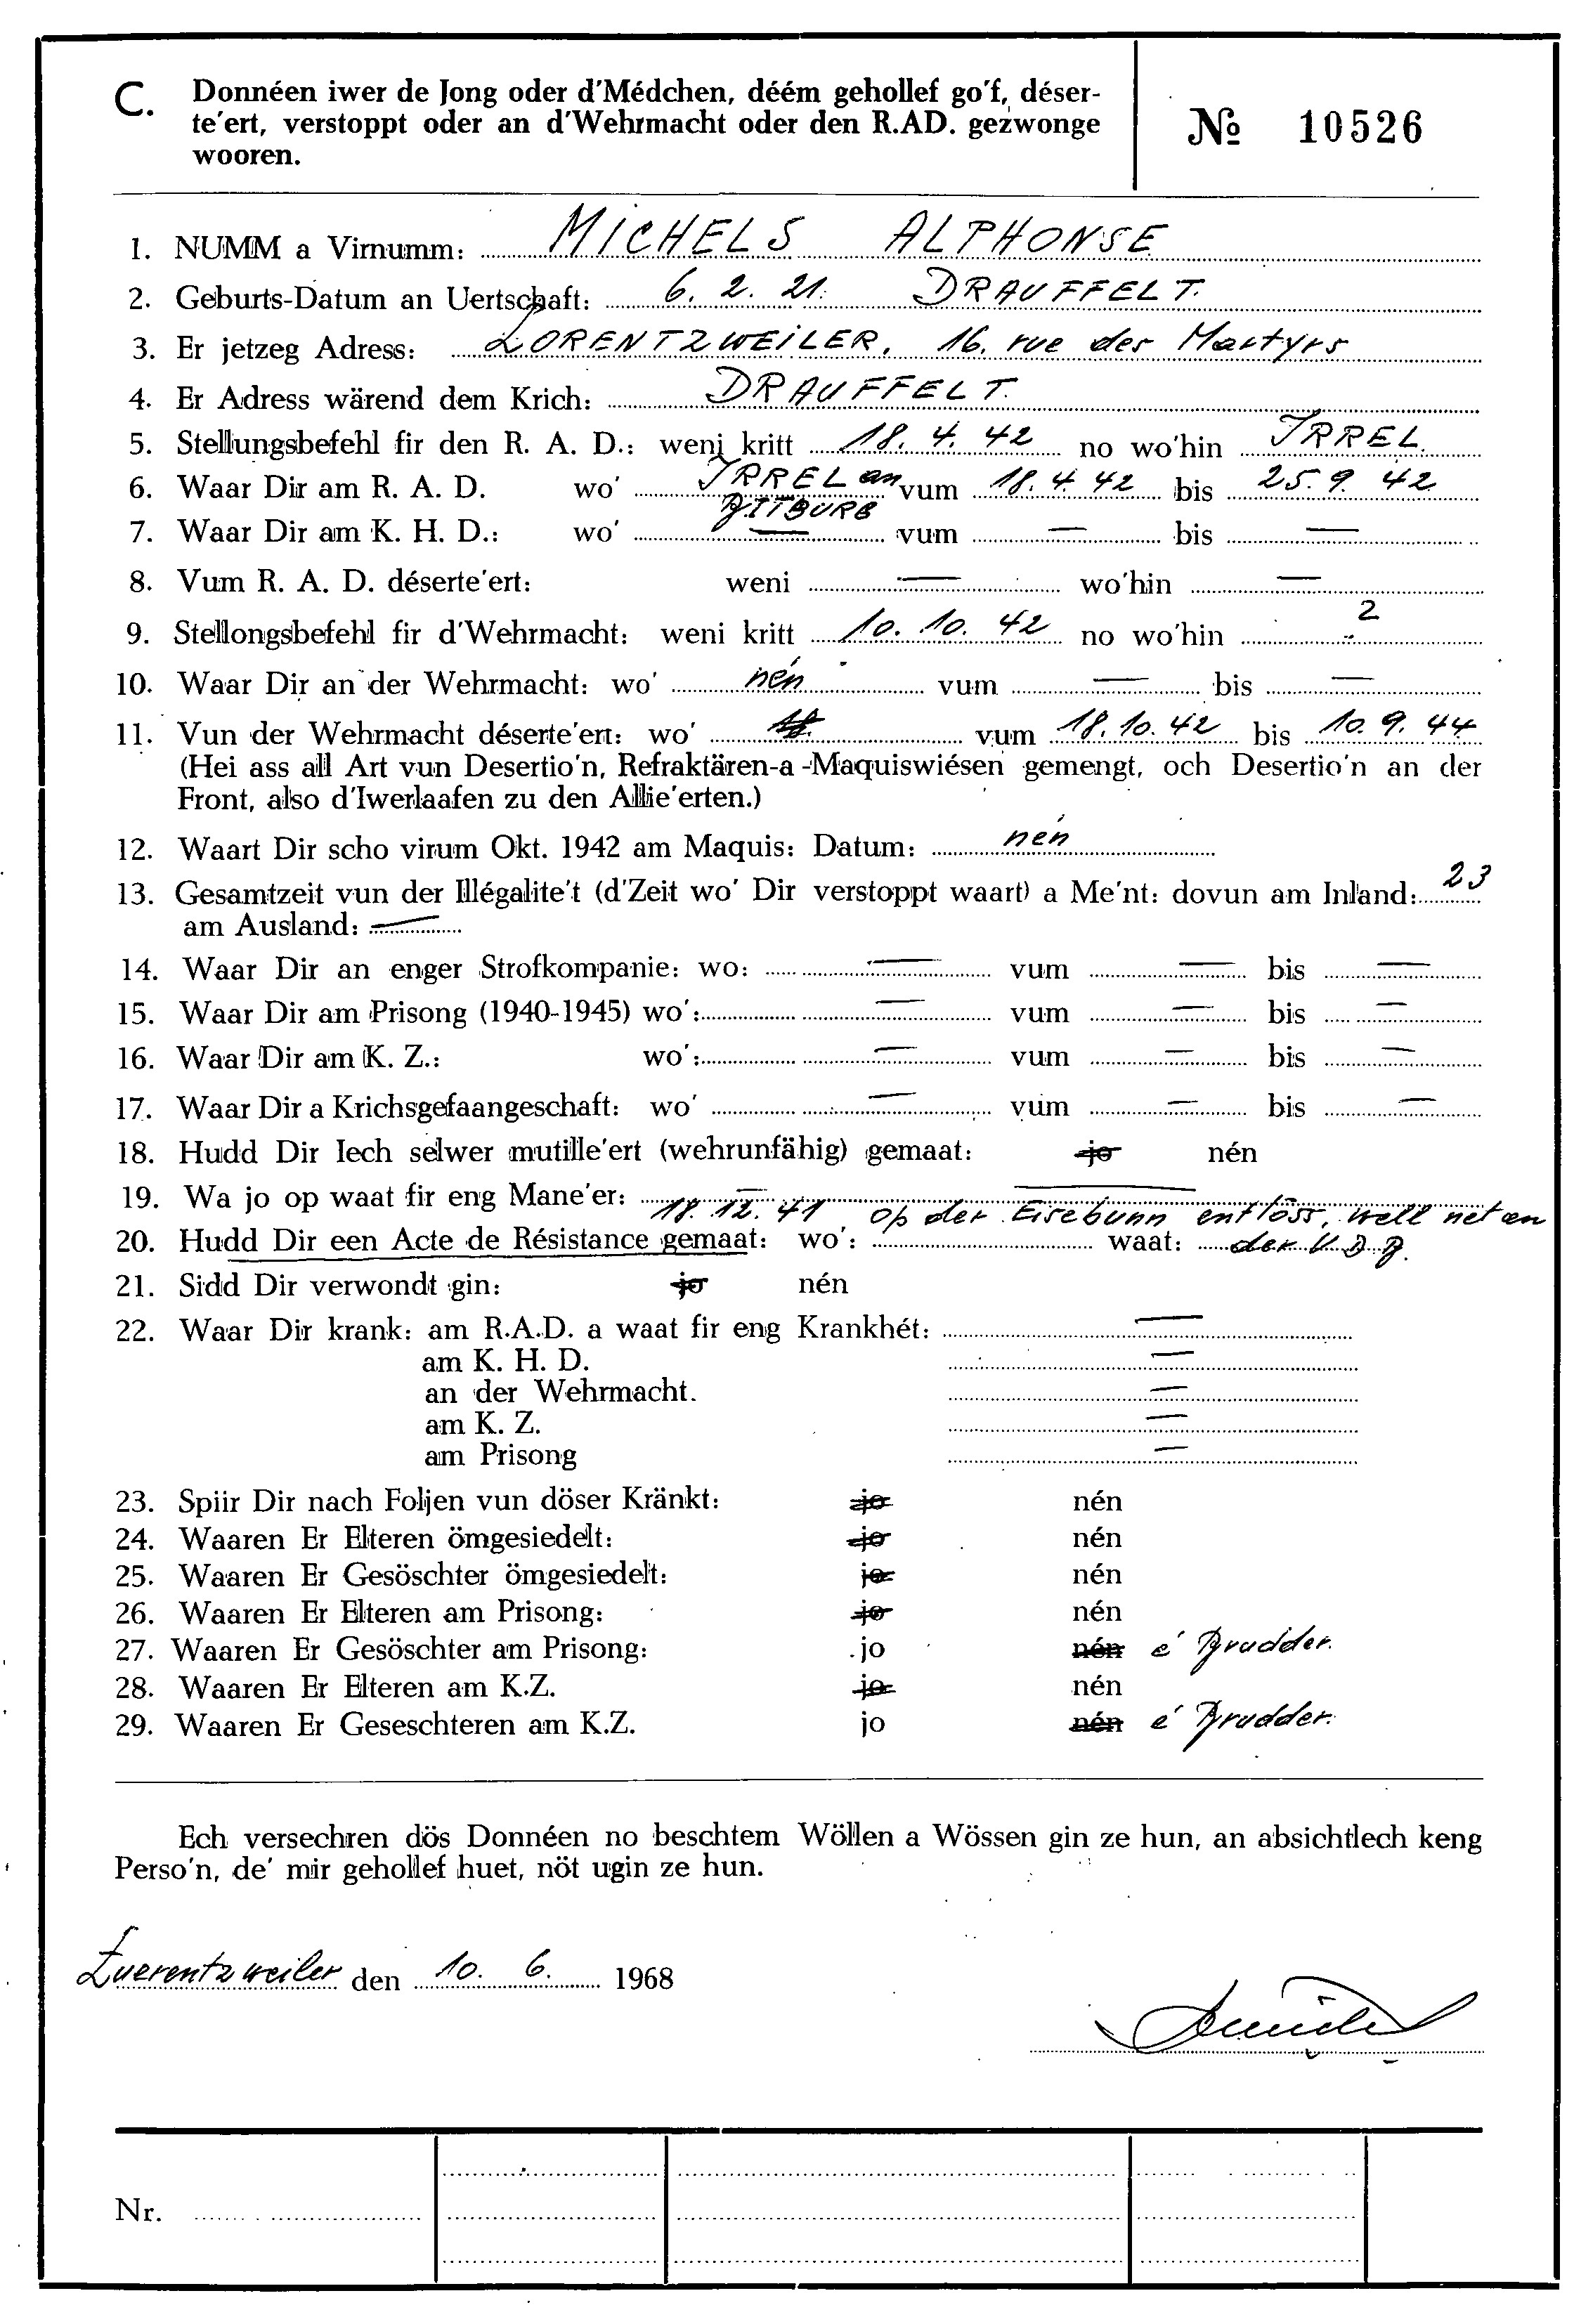 C. Donnéen iwer de Jong oder d'Médchen, déém gehollef go'f, déser-
te'ert, verstoppt oder an d'Wehrmacht oder den R.AD. gezwonge
wooren.
№ 10526
1. NUMM a Virnumm: MICHELS ALPHONSE
2. Geburts-Datum an Uertschaft: 6. 2. 21. DRAUFFELT.
3. Er jetzeg Adress: LORENTZWEILER. 16. rue des Martyrs
4. Er Adress wärend dem Krich: DRAUFFELT.
5. Stellungsbefehl fir den R. A. D.: weni kritt 18. 4. 42 no wo'hin IRREL.
6. Waar Dir am R. A. D. wo' IRREL an vum 18. 4. 42 bis 25. 9. 42
BITBURG
7. Waar Dir am K. H. D.: wo' — vum — bis —
8. Vum R. A. D. déserte'ert: weni — wo'hin —
9. Stellongsbefehl fir d'Wehrmacht: weni kritt 10. 10. 42 no wo'hin
10. Waar Dir an der Wehrmacht: wo' nén vum — bis —
11. Vun der Wehrmacht déserte'ert: wo' vum 18. 10. 42 bis 10. 9. 44
(Hei ass all Art vun Desertio'n, Refraktären-a-Maquiswiésen gemengt, och Desertio'n an der
Front, also d'Iwerlaafen zu den Allie'erten.)
12. Waart Dir scho virum Okt. 1942 am Maquis: Datum: nén
13. Gesamtzeit vun der Illégalite't (d'Zeit wo' Dir verstoppt waart) a Me'nt: dovun am Inland: 23
am Ausland: —
14. Waar Dir an enger Strofkompanie: wo: — vum — bis —
15. Waar Dir am Prisong (1940-1945) wo': — vum — bis —
16. Waar Dir am K. Z.: wo': — vum — bis —
17. Waar Dir a Krichsgefaangeschaft: wo' — vum — bis —
18. Hudd Dir Iech selwer mutille'ert (wehrunfähig) gemaat: jo nén
19. Wa jo op waat fir eng Mane'er: — —
18. 12. 41 op der Eisebunn entlöss, well net an
20. Hudd Dir een Acte de Résistance gemaat: wo': waat: der V. D. B.
21. Sidd Dir verwondt gin: jo nén
22. Waar Dir krank: am R.A.D. a waat fir eng Krankhét: —
am K. H. D. —
an der Wehrmacht. —
am K. Z. —
am Prisong —
23. Spiir Dir nach Foljen vun döser Kränkt: jo nén
24. Waaren Er Elteren ömgesiedelt: jo nén
25. Waaren Er Gesöschter ömgesiedelt: jo nén
26. Waaren Er Elteren am Prisong: jo nén
27. Waaren Er Gesöschter am Prisong: jo nén e' Brudder.
28. Waaren Er Elteren am K.Z. jo nén
29. Waaren Er Geseschteren am K.Z. jo nén e' Brudder.
Ech versechren dös Donnéen no beschtem Wöllen a Wössen gin ze hun, an absichtlech keng
Perso'n, de' mir gehollef huet, nöt ugin ze hun.
Luerentzweiler den 10. 6. 1968
Nr.